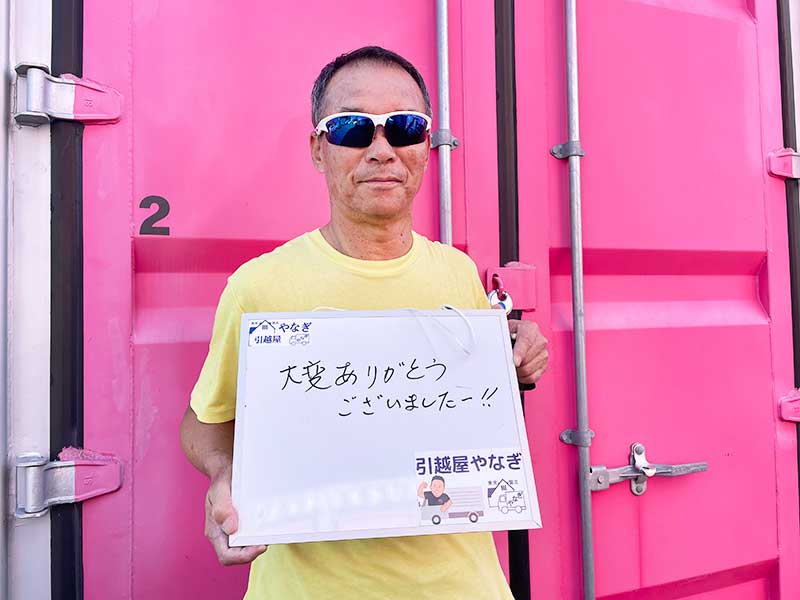 2
やなぎ
引越屋
大変ありがとう
ございましたー!!
引越屋やなぎ
やなぎ